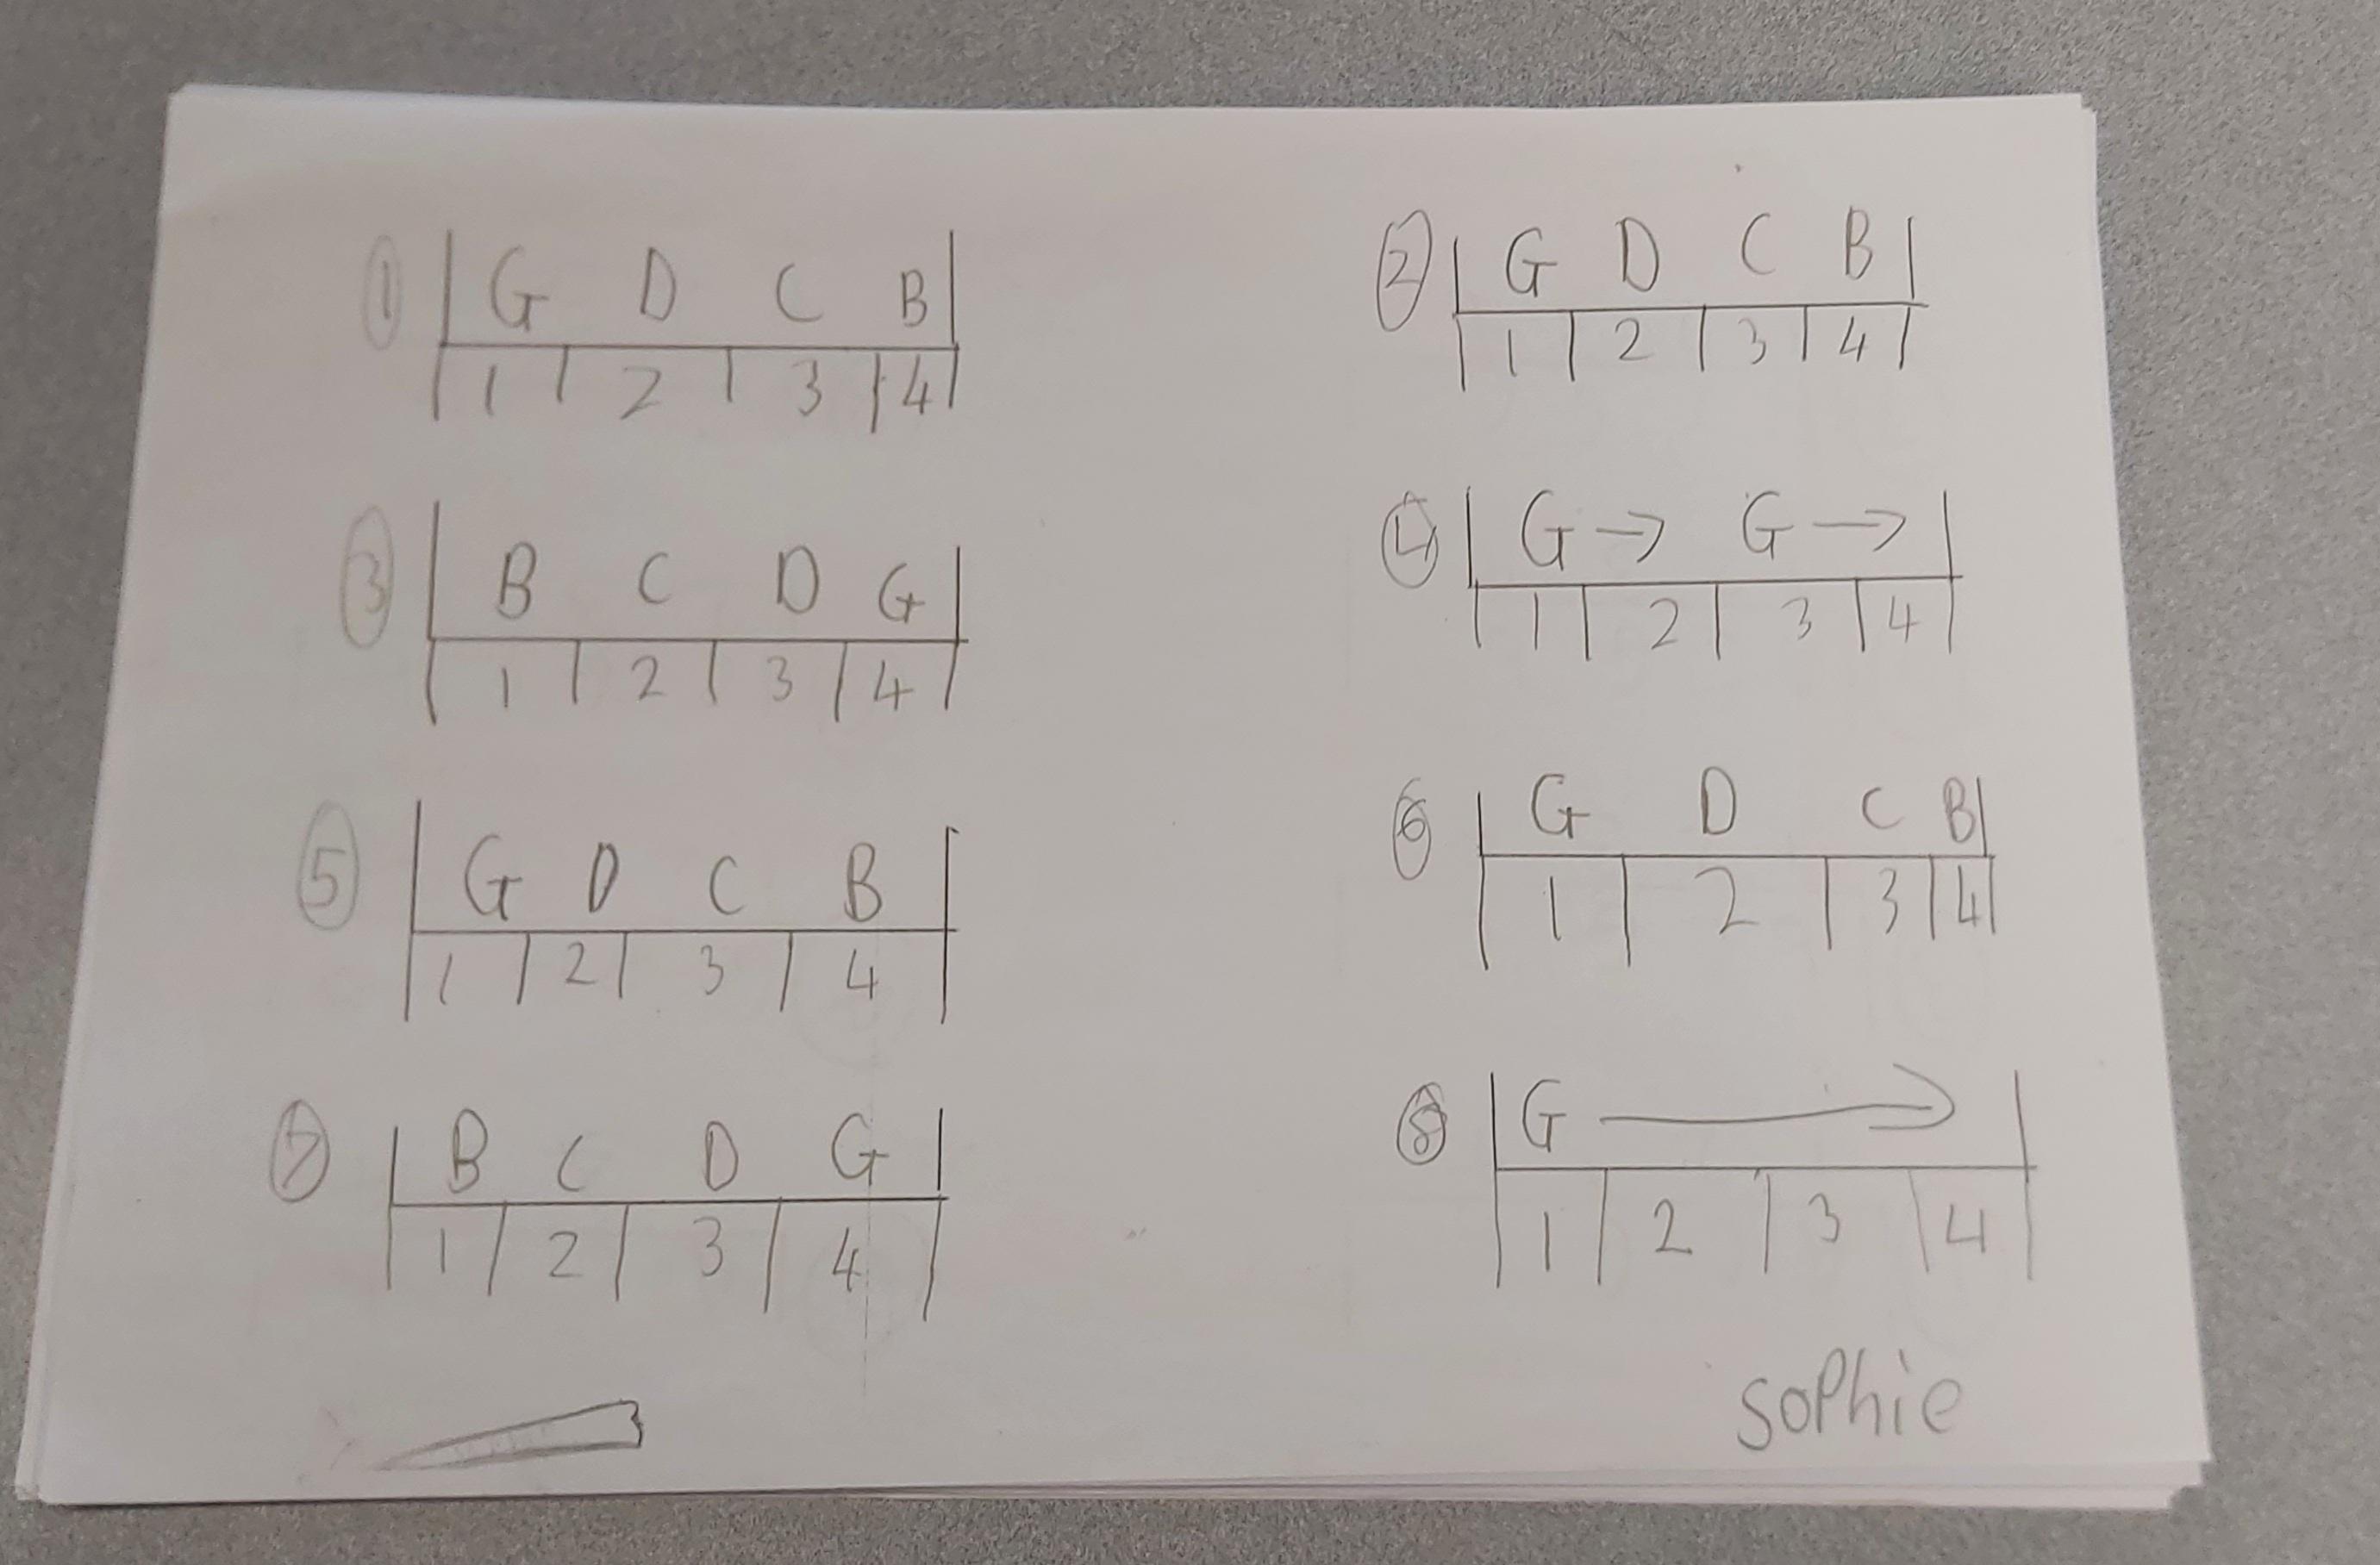 ① G D C B
1 2 3 4
② G D C B
1 2 3 4
③ B C D G
1 2 3 4
④ G → G →
1 2 3 4
⑤ G D C B
1 2 3 4
⑥ G D C B
1 2 3 4
⑦ B C D G
1 2 3 4
⑧ G →
1 2 3 4
Sophie